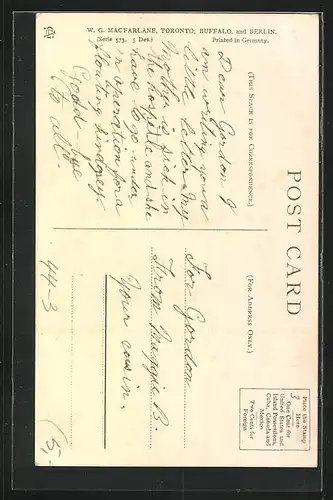 W. G. MACFARLANE, TORONTO, BUFFALO, and BERLIN.
(Serie 573. 5 Des.) Printed in Germany.
(THIS SPACE IS FOR CORRESPONDENCE.)
Dear Gordon I
am writing you a
little letter My
Mother is sick in
the hospitle and she
have to go under
an operation for a
floating kindney.
Good-bye
to all.
POST CARD
(FOR ADDRESS ONLY.)
For Gordon
From Maggie B.
Your cousin.
Place the Stamp
Here
One Cent for
United States and
Island Possessions,
Cuba, Canada and
Mexico
Two Cents for
Foreign
3
44-3
(5,-